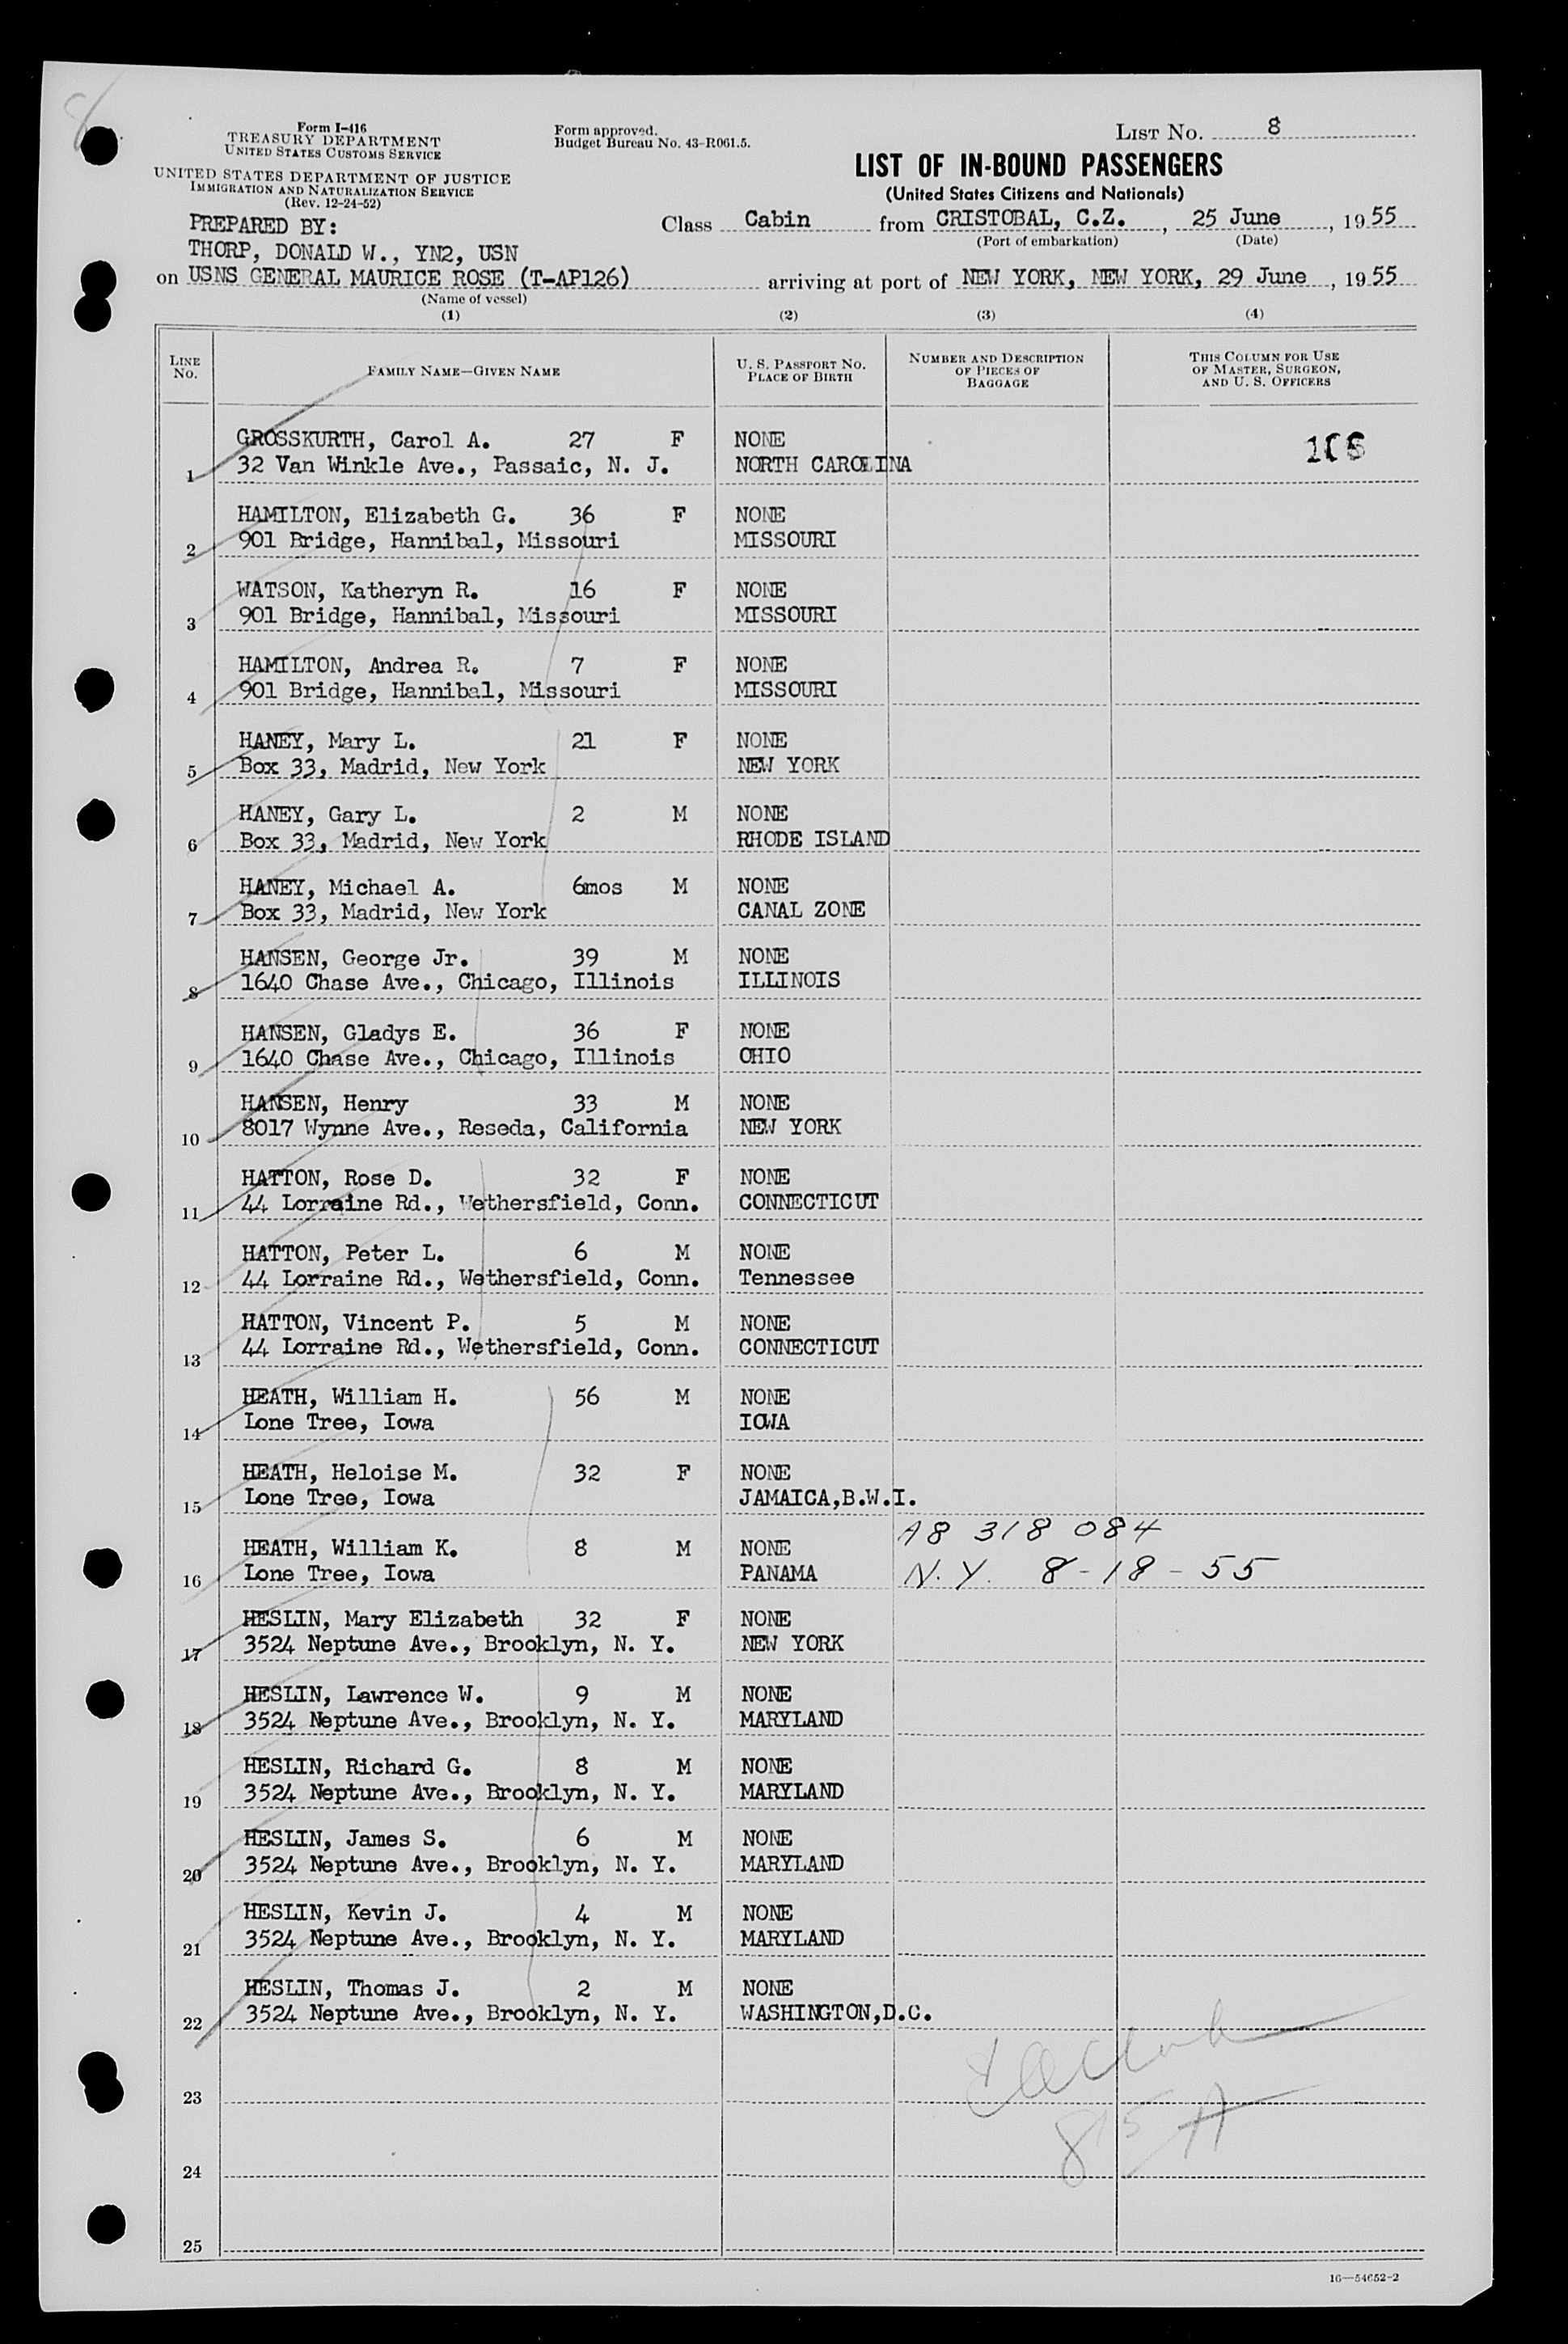 8
Form I-416
TREASURY DEPARTMENT
UNITED STATES CUSTOMS SERVICE
UNITED STATES DEPARTMENT OF JUSTICE
IMMIGRATION AND NATURALIZATION SERVICE
(Rev. 12-24-52)
Form approved.
Budget Bureau No. 43-R061.5.
LIST NO. 8
LIST OF IN-BOUND PASSENGERS
(United States Citizens and Nationals)
PREPARED BY:
THORP, DONALD W., YN2, USN
Class Cabin from CRISTOBAL, C.Z., 25 June, 1955
(Port of embarkation) (Date)
on USNS GENERAL MAURICE ROSE (T-AP126) arriving at port of NEW YORK, NEW YORK, 29 June, 1955
(Name of vessel)
(1) (2) (3) (4)
LINE NO. FAMILY NAME—GIVEN NAME U. S. PASSPORT NO. PLACE OF BIRTH NUMBER AND DESCRIPTION OF PIECES OF BAGGAGE THIS COLUMN FOR USE OF MASTER, SURGEON, AND U. S. OFFICERS
GROSSKURTH, Carol A. 27 F NONE
1 32 Van Winkle Ave., Passaic, N. J. NORTH CAROLINA
HAMILTON, Elizabeth G. 36 F NONE
2 901 Bridge, Hannibal, Missouri MISSOURI
WATSON, Katheryn R. 16 F NONE
3 901 Bridge, Hannibal, Missouri MISSOURI
HAMILTON, Andrea R. 7 F NONE
4 901 Bridge, Hannibal, Missouri MISSOURI
HANEY, Mary L. 21 F NONE
5 Box 33, Madrid, New York NEW YORK
HANEY, Gary L. 2 M NONE
6 Box 33, Madrid, New York RHODE ISLAND
HANEY, Michael A. 6mos M NONE
7 Box 33, Madrid, New York CANAL ZONE
HANSEN, George Jr. 39 M NONE
8 1640 Chase Ave., Chicago, Illinois ILLINOIS
HANSEN, Gladys E. 36 F NONE
9 1640 Chase Ave., Chicago, Illinois OHIO
HANSEN, Henry 33 M NONE
10 8017 Wynne Ave., Reseda, California NEW YORK
HATTON, Rose D. 32 F NONE
11 44 Lorraine Rd., Wethersfield, Conn. CONNECTICUT
HATTON, Peter L. 6 M NONE
12 44 Lorraine Rd., Wethersfield, Conn. Tennessee
HATTON, Vincent P. 5 M NONE
13 44 Lorraine Rd., Wethersfield, Conn. CONNECTICUT
HEATH, William H. 56 M NONE
14 Lone Tree, Iowa IOWA
HEATH, Heloise M. 32 F NONE
15 Lone Tree, Iowa JAMAICA,B.W.I.
A8 318 084
HEATH, William K. 8 M NONE
16 Lone Tree, Iowa PANAMA N.Y. 8-18-55
HESLIN, Mary Elizabeth 32 F NONE
17 3524 Neptune Ave., Brooklyn, N. Y. NEW YORK
HESLIN, Lawrence W. 9 M NONE
18 3524 Neptune Ave., Brooklyn, N. Y. MARYLAND
HESLIN, Richard G. 8 M NONE
19 3524 Neptune Ave., Brooklyn, N. Y. MARYLAND
HESLIN, James S. 6 M NONE
20 3524 Neptune Ave., Brooklyn, N. Y. MARYLAND
HESLIN, Kevin J. 4 M NONE
21 3524 Neptune Ave., Brooklyn, N. Y. MARYLAND
HESLIN, Thomas J. 2 M NONE
22 3524 Neptune Ave., Brooklyn, N. Y. WASHINGTON,D.C.
23
24
25
16—54652-2